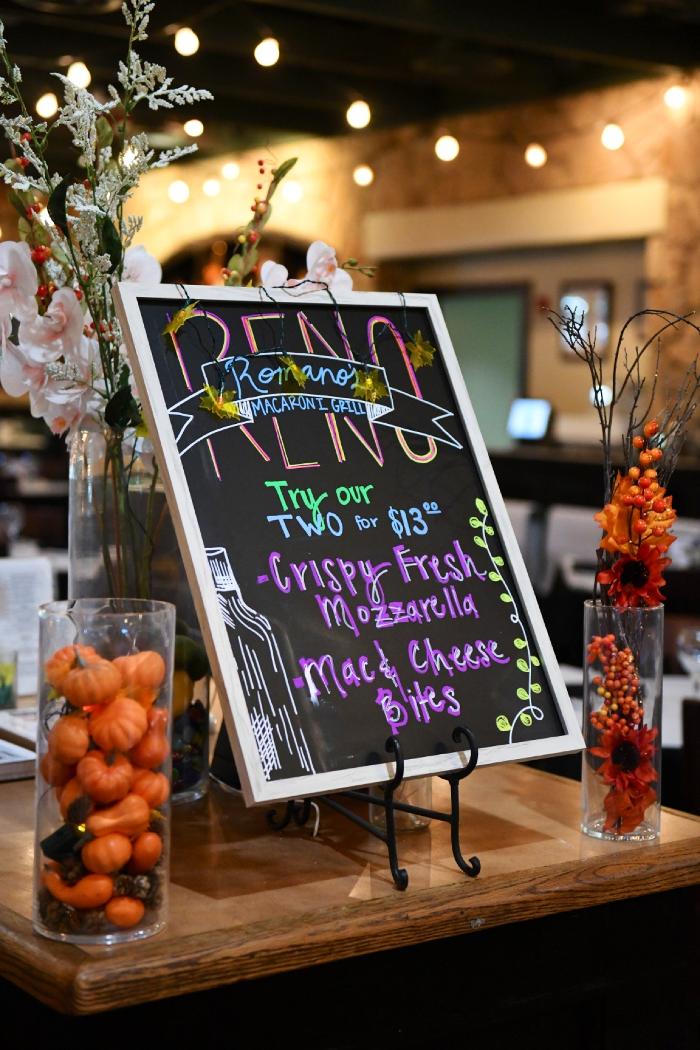 RENO
Romano's
MACARONI GRILL
RENO
Try our
TWO for $13.00
-Crispy Fresh
Mozzarella
-Mac & Cheese
Bites